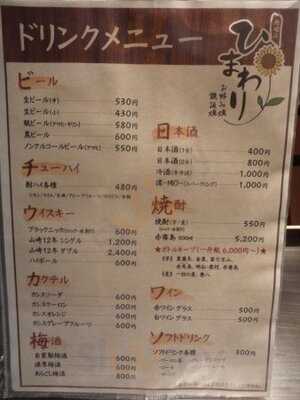 ドリンクメニュー
ひまわり
お好み焼
鉄板焼
ビール
生ビール(中) 530円
生ビール(小) 430円
瓶ビール(アサヒ・キリン) 580円
黒ビール 600円
ノンアルコールビール(アサヒ) 550円
チューハイ
酎ハイ各種 480円
ウィスキー
ブラックニッカ 600円
山崎12年 シングル 1,200円
山崎12年 ダブル 2,400円
ハイボール 600円
カクテル
カシスソーダ 600円
カシスウーロン 600円
カシスオレンジ 600円
カシスグレープフルーツ 600円
梅酒
自家製梅酒 600円
濃厚梅酒 800円
あらごし梅酒 800円
日本酒
日本酒 400円
日本酒 800円
冷酒 1,000円
澪-MIO-(スパークリング) 1,000円
焼酎
焼酎(芋・麦) 550円
赤霧島 5,200円
★ボトルキープ(一升瓶 6,000円〜)★
ワイン
赤ワイン グラス 500円
白ワイン グラス 500円
ソフトドリンク
ソフトドリンク各種 300円